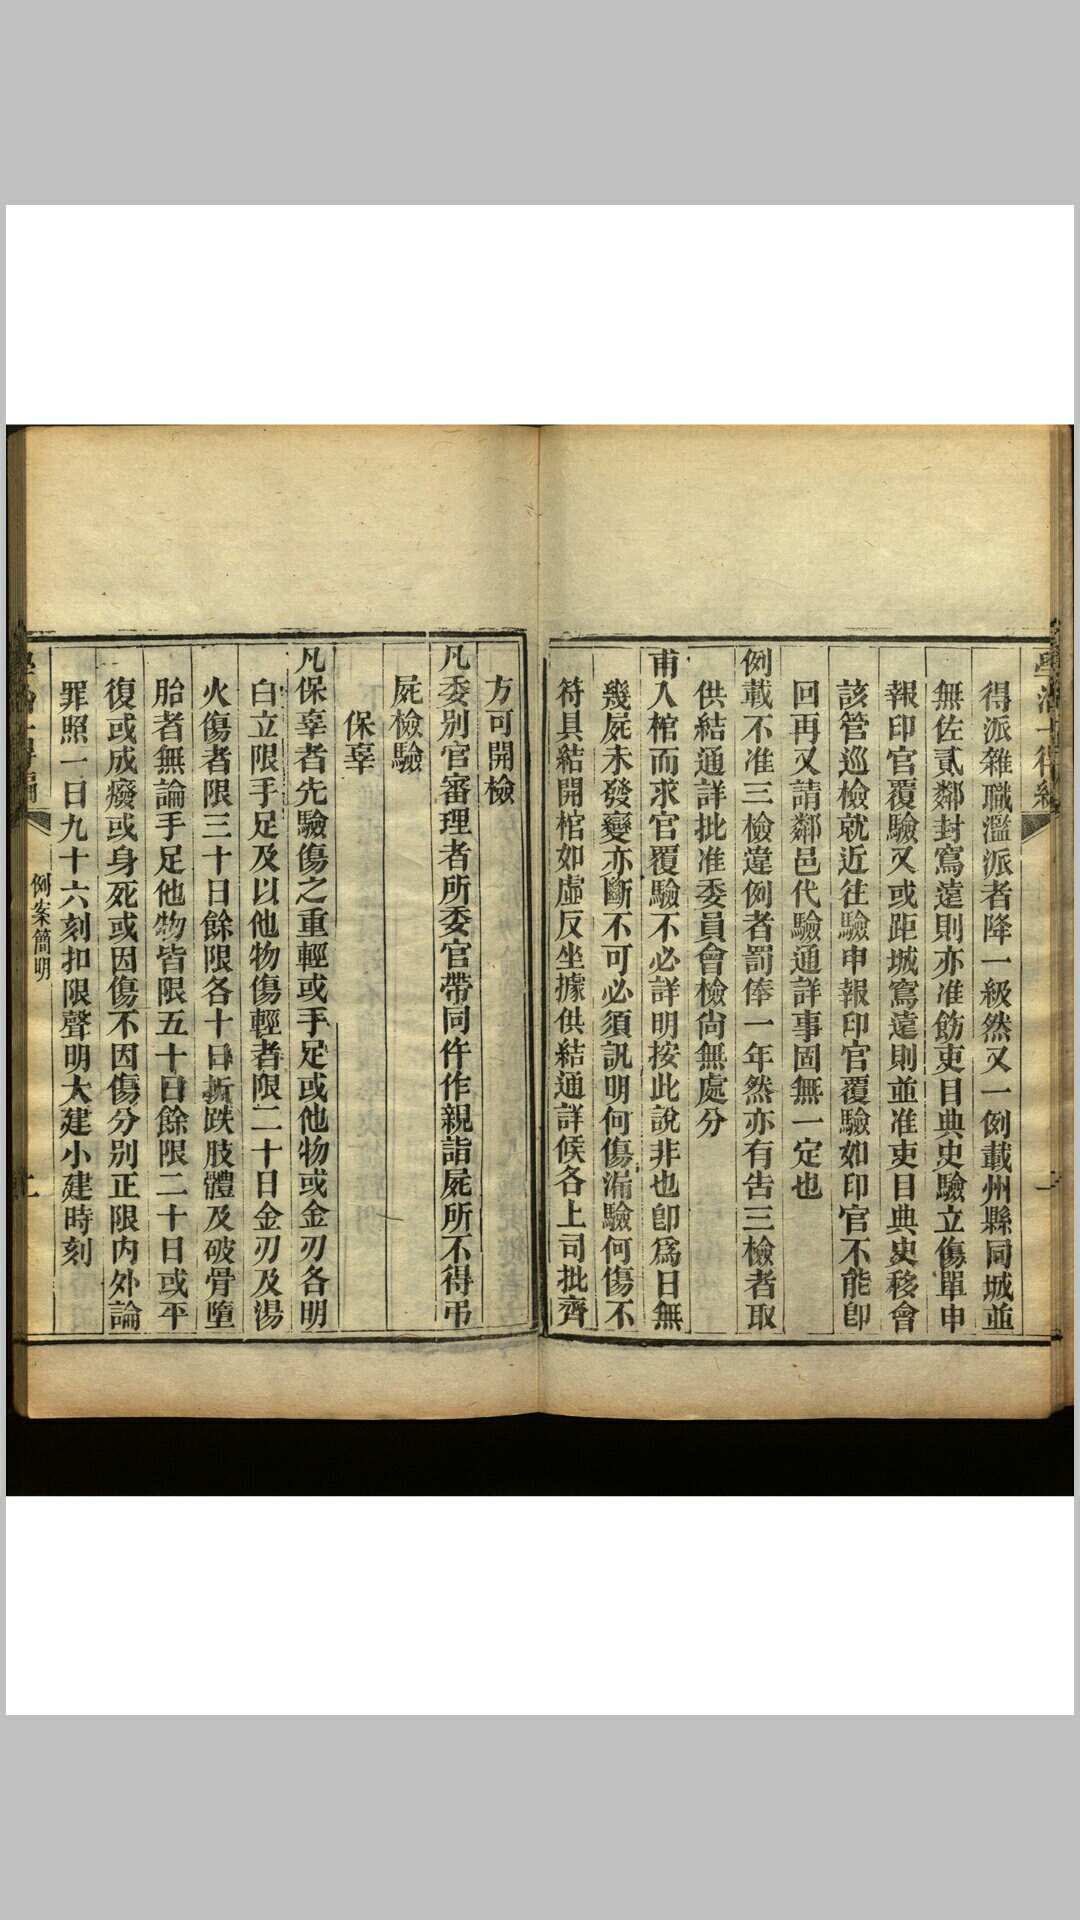 得派雜職濫派者降一級然又一例載州縣同城並
無佐貳鄰封寫遠則亦准飭吏目典史驗立傷單申
報印官覆驗又或距城寫遠則並准吏目典史移會
該管巡檢就近往驗申報印官覆驗如印官不能卽
回再又請鄰邑代驗通詳事固無一定也
例載不准三檢違例者罰俸一年然亦有告三檢者取
供結通詳批准委員會檢尙無處分
甫入棺而求官覆驗不必詳明按此說非也卽爲日無
幾屍未發變亦斷不可必須訊明何傷漏驗何傷不
符具結開棺如虛反坐據供結通詳候各上司批齊
方可開檢
凡委別官審理者所委官帶同仵作親詣屍所不得弔
屍檢驗
保辜
凡保辜者先驗傷之重輕或手足或他物或金刃各明
白立限手足及以他物傷輕者限二十日金刃及湯
火傷者限三十日餘限各十日折跌肢體及破骨墮
胎者無論手足他物皆限五十日餘限二十日或平
復或成癈或身死或因傷不因傷分别正限内外論
罪照一日九十六刻扣限聲明大建小建時刻
例案簡明